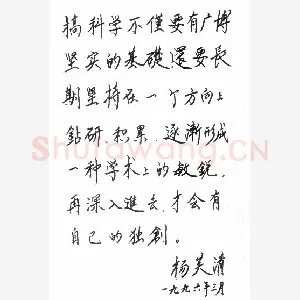 搞科学不僅要有广博
坚实的基礎還要長
期坚持在一个方向上
鉆研积累,逐漸形成
一种学术上的敏銳,
再深入進去,才会有
自己的独創。
杨芙清
一九九六年三月
Shufawang.CN